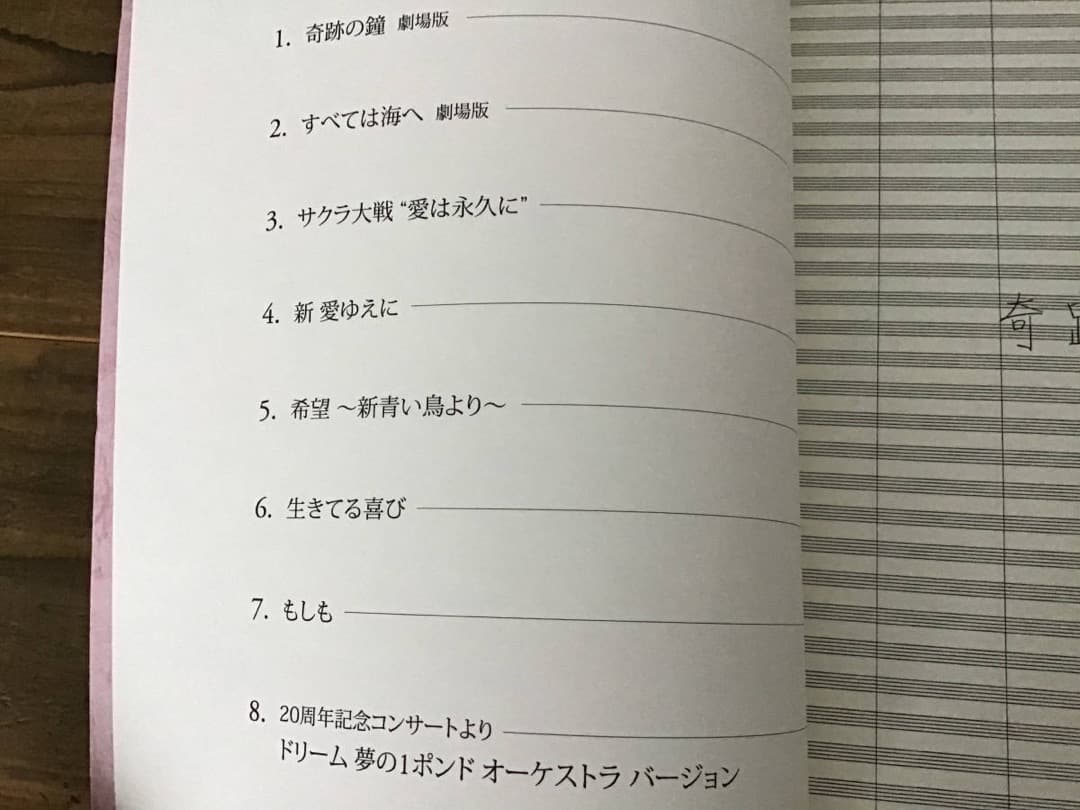 1. 奇跡の鐘 劇場版
2. すべては海へ 劇場版
3. サクラ大戦 “愛は永久に”
4. 新 愛ゆえに
奇
5. 希望 〜新青い鳥より〜
6. 生きてる喜び
7. もしも
8. 20周年記念コンサートより
ドリーム 夢の1ポンド オーケストラ バージョン